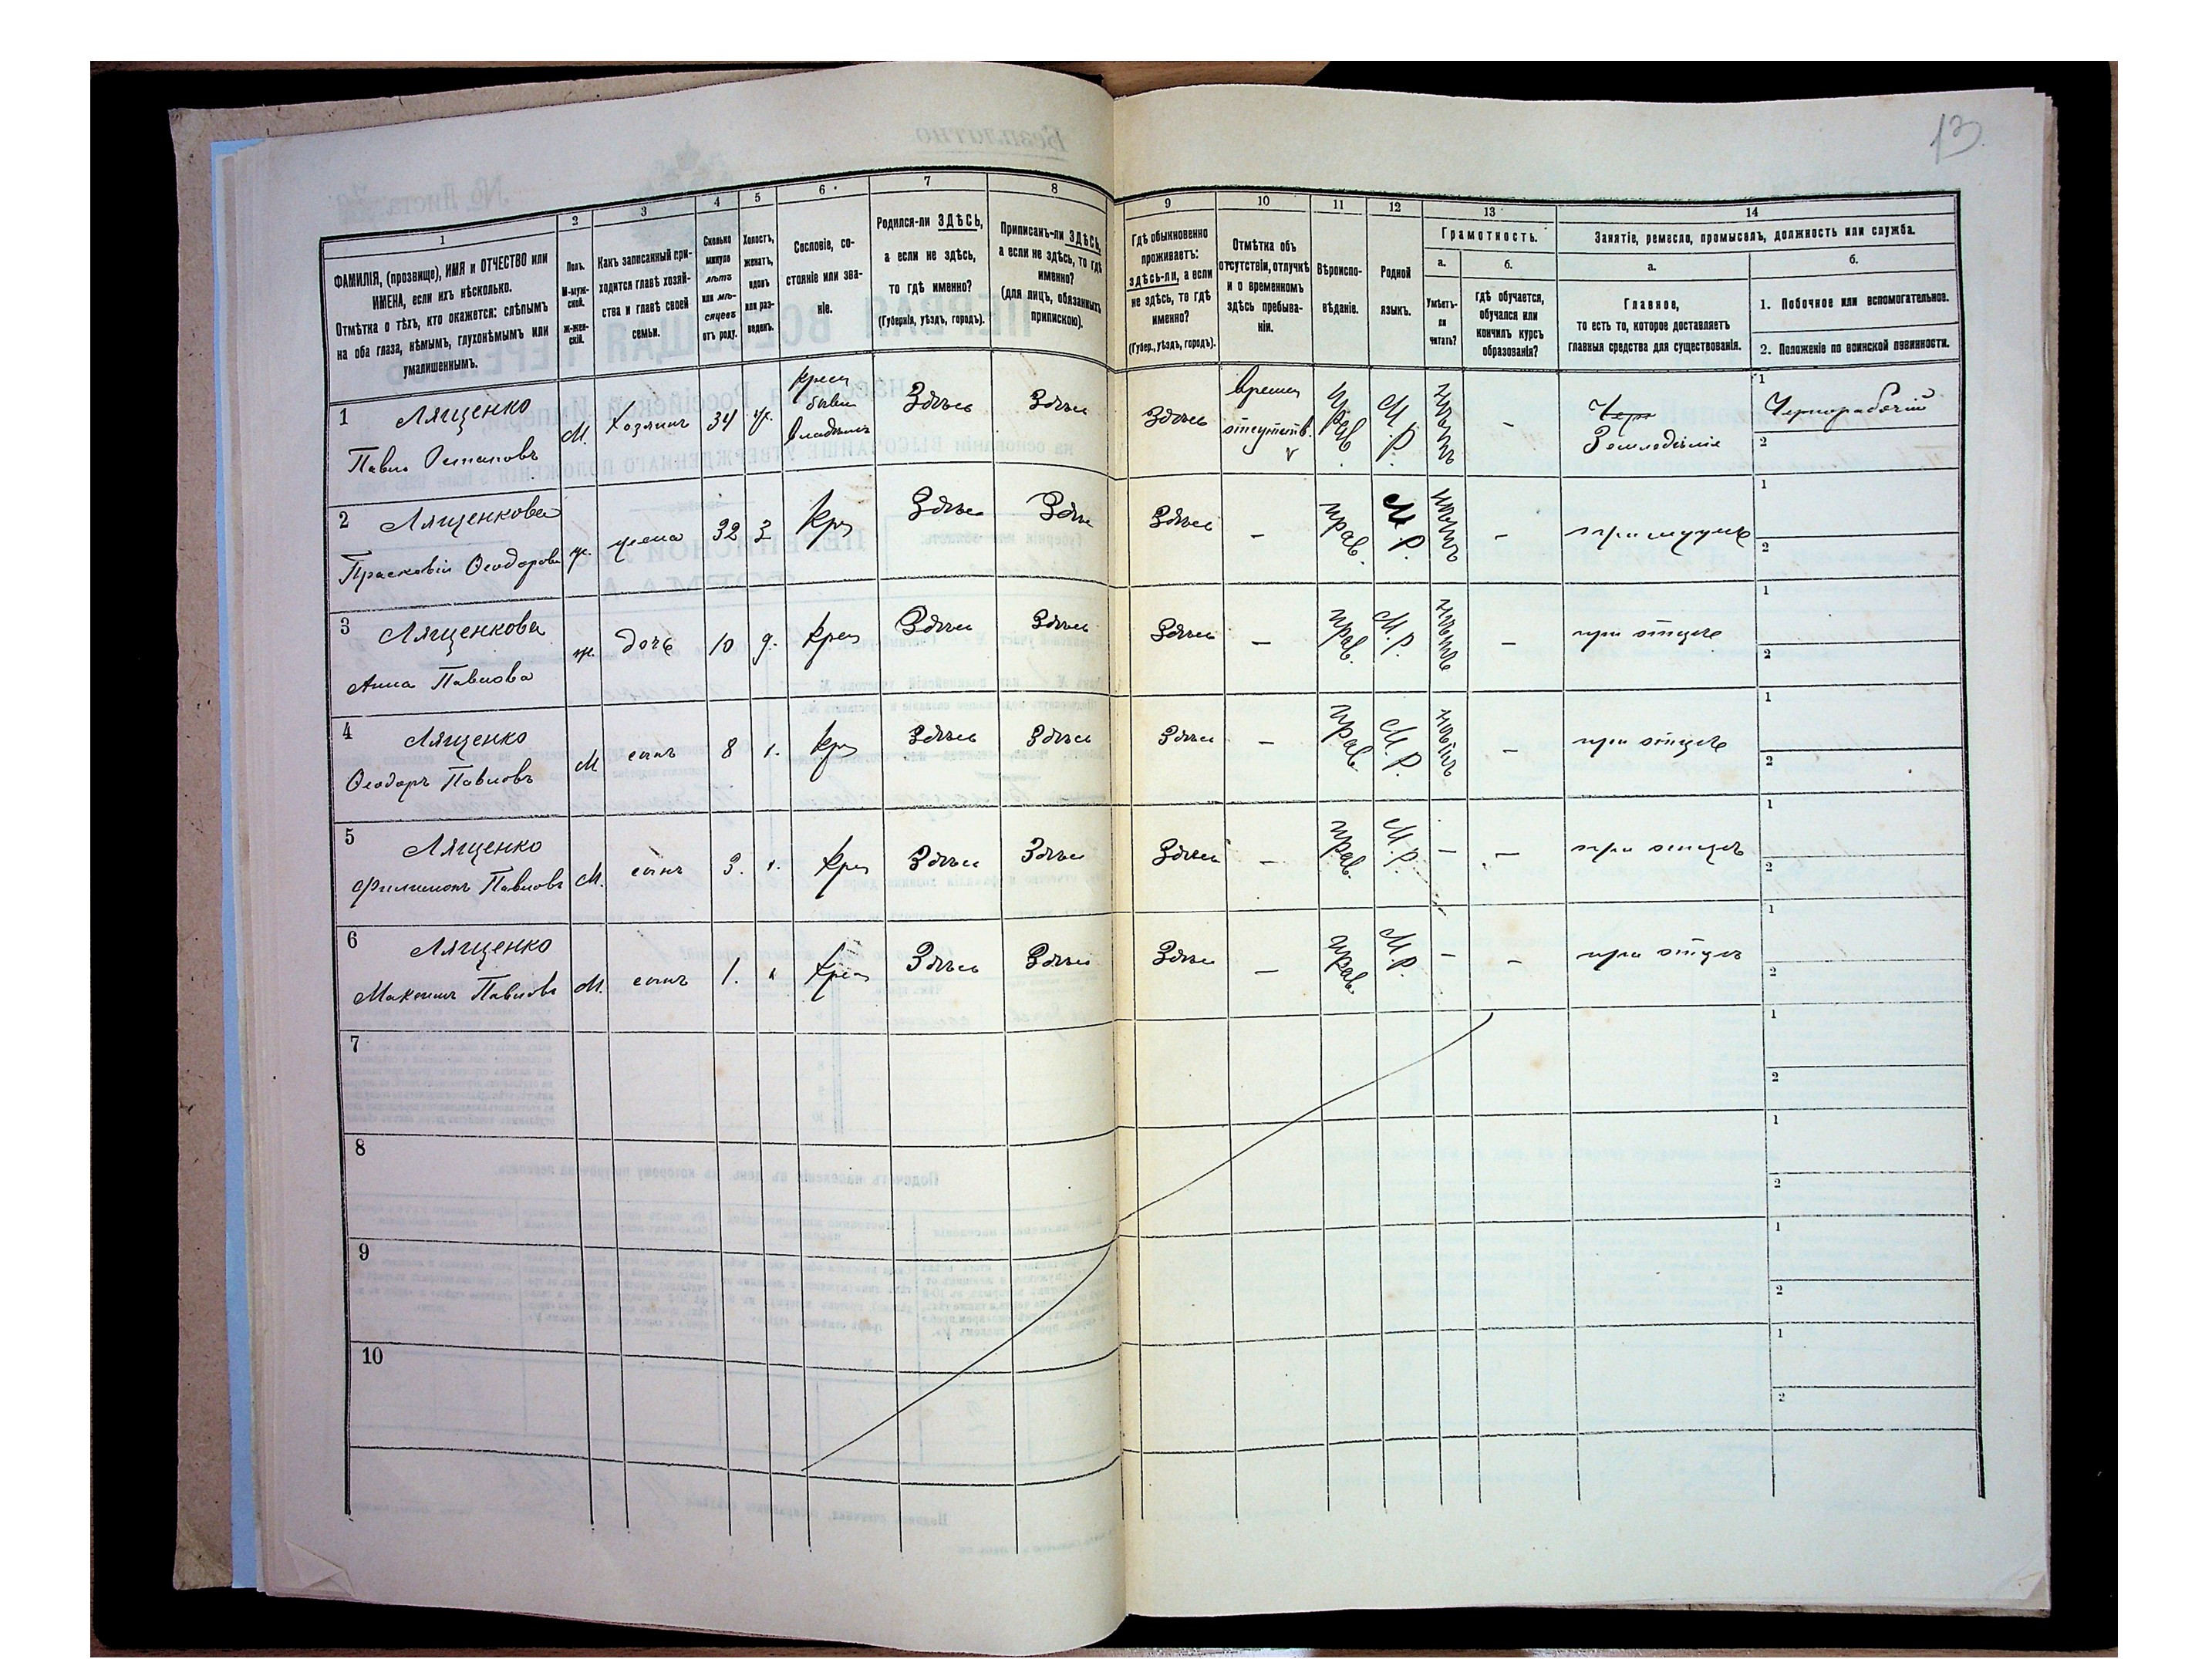 13
1 2 3 4 5 6 7 8
ФАМИЛІЯ, (прозвище), ИМЯ и ОТЧЕСТВО или
ИМЕНА, если ихъ нѣсколько.
Отмѣтка о тѣхъ, кто окажется: слѣпымъ
на оба глаза, нѣмымъ, глухонѣмымъ или
умалишеннымъ.
Полъ.
М-муж-
ской.
Ж-жен-
скій.
Какъ записанный при-
ходится главѣ хозяй-
ства и главѣ своей
семьи.
Сколько
минуло
лѣтъ
или мѣ-
сяцевъ
отъ роду.
Холостъ,
женатъ,
вдовъ
или раз-
веденъ.
Сословіе, со-
стояніе или зва-
ніе.
Родился-ли ЗДѢСЬ,
а если не здѣсь,
то гдѣ именно?
(Губернія, уѣздъ, городъ).
Приписанъ-ли ЗДѢСЬ,
а если не здѣсь, то гдѣ
именно?
(для лицъ, обязанныхъ
припискою).
9 10 11 12 13 14
Гдѣ обыкновенно
проживаетъ:
здѣсь-ли, а если
не здѣсь, то гдѣ
именно?
(Губер., уѣздъ, городъ).
Отмѣтка объ
отсутствіи, отлучкѣ
и о временномъ
здѣсь пребыва-
ніи.
Вѣроиспо-
вѣданіе.
Родной
языкъ.
Грамотность.
а.
Умѣетъ-
ли
читать?
б.
гдѣ обучается,
обучался или
кончилъ курсъ
образованія?
Занятіе, ремесло, промыселъ, должность или служба.
а.
Главное,
то есть то, которое доставляетъ
главныя средства для существованія.
б.
1. Побочное или вспомогательное.
2. Положеніе по воинской повинности.
1 Лященко
Павло Остаповъ М. Хозяинъ 34 ж. крест бывш владѣльч Здѣсь Здѣсь Здѣсь времен отсутств. прав. М.Р. нѣтъ - Чер Земледѣліе 1 Чернорабочій 2
2 Лященкова
Прасковія Ѳеодорова ж. жена 32 З Крес Здѣсь Здѣсь Здѣсь - прав. М.Р. нѣтъ - при мужѣ 1 2
3 Лященкова
Анна Павлова ж. дочь 10 д. крес Здѣсь Здѣсь Здѣсь - прав. М.Р. нѣтъ - при отцѣ 1 2
4 Лященко
Ѳеодоръ Павловъ М сынъ 8 х. Крес Здѣсь Здѣсь Здѣсь - прав. М.Р. нѣтъ - при отцѣ 1 2
5 Лященко
Филимонъ Павловъ М. сынъ 3. х. Крес Здѣсь Здѣсь Здѣсь - прав. М.Р. - - при отцѣ 1 2
6 Лященко
Максимъ Павловъ М. сынъ 1. х Крес Здѣсь Здѣсь Здѣсь - прав. М.Р. - - при отцѣ 1 2
7 1 2
8 1 2
9 1 2
10 1 2